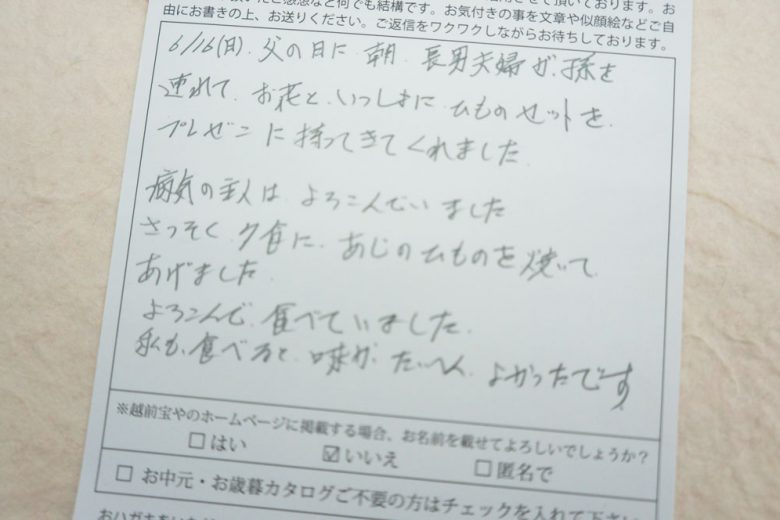 由にお書きの上、お送りください。ご返信をワクワクしながらお待ちしております。
6/16(日). 父の日に 朝. 長男夫婦が. 孫を
連れて. お花と. いっしょに ひものセットを.
プレゼンに 持ってきてくれました.
病気の主人は よろこんでいました
さっそく 夕食に. あじのひものを 焼いて
あげました.
よろこんで. 食べていました.
私も. 食べると. 味が. たいへん よかったです
※越前宝やのホームページに掲載する場合、お名前を載せてよろしいでしょうか？
☐ はい ☑ いいえ ☐ 匿名で
☐ お中元・お歳暮カタログご不要の方はチェックを入れて下さい